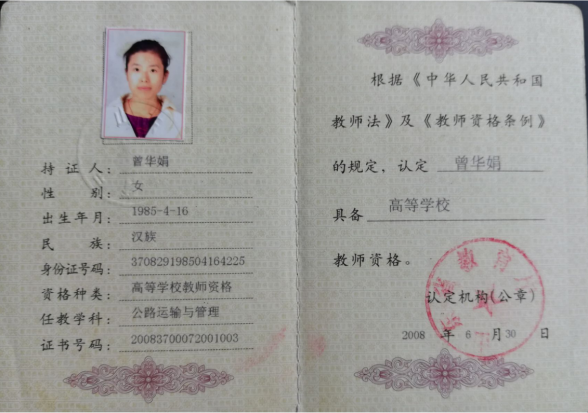 持证人：曾华娟
性别：女
出生年月：1985-4-16
民族：汉族
身份证号码：370829198504164225
资格种类：高等学校教师资格
任教学科：公路运输与管理
证书号码：20083700072001003
根据《中华人民共和国
教师法》及《教师资格条例》
的规定，认定 曾华娟
具备 高等学校
教师资格。
认定机构(公章)
2008 年 6 月 30 日